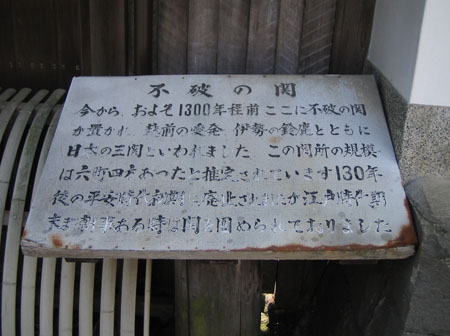 不破の関
今から、およそ1300年程前ここに不破の関
が置かれ 越前の愛発 伊勢の鈴鹿とともに
日本の三関といわれました この関所の規模
は六町四方あったと推定されています 130年
後の平安時代初期に廃止されましたが江戸時代期
末まで事ある時は関を固められておりました